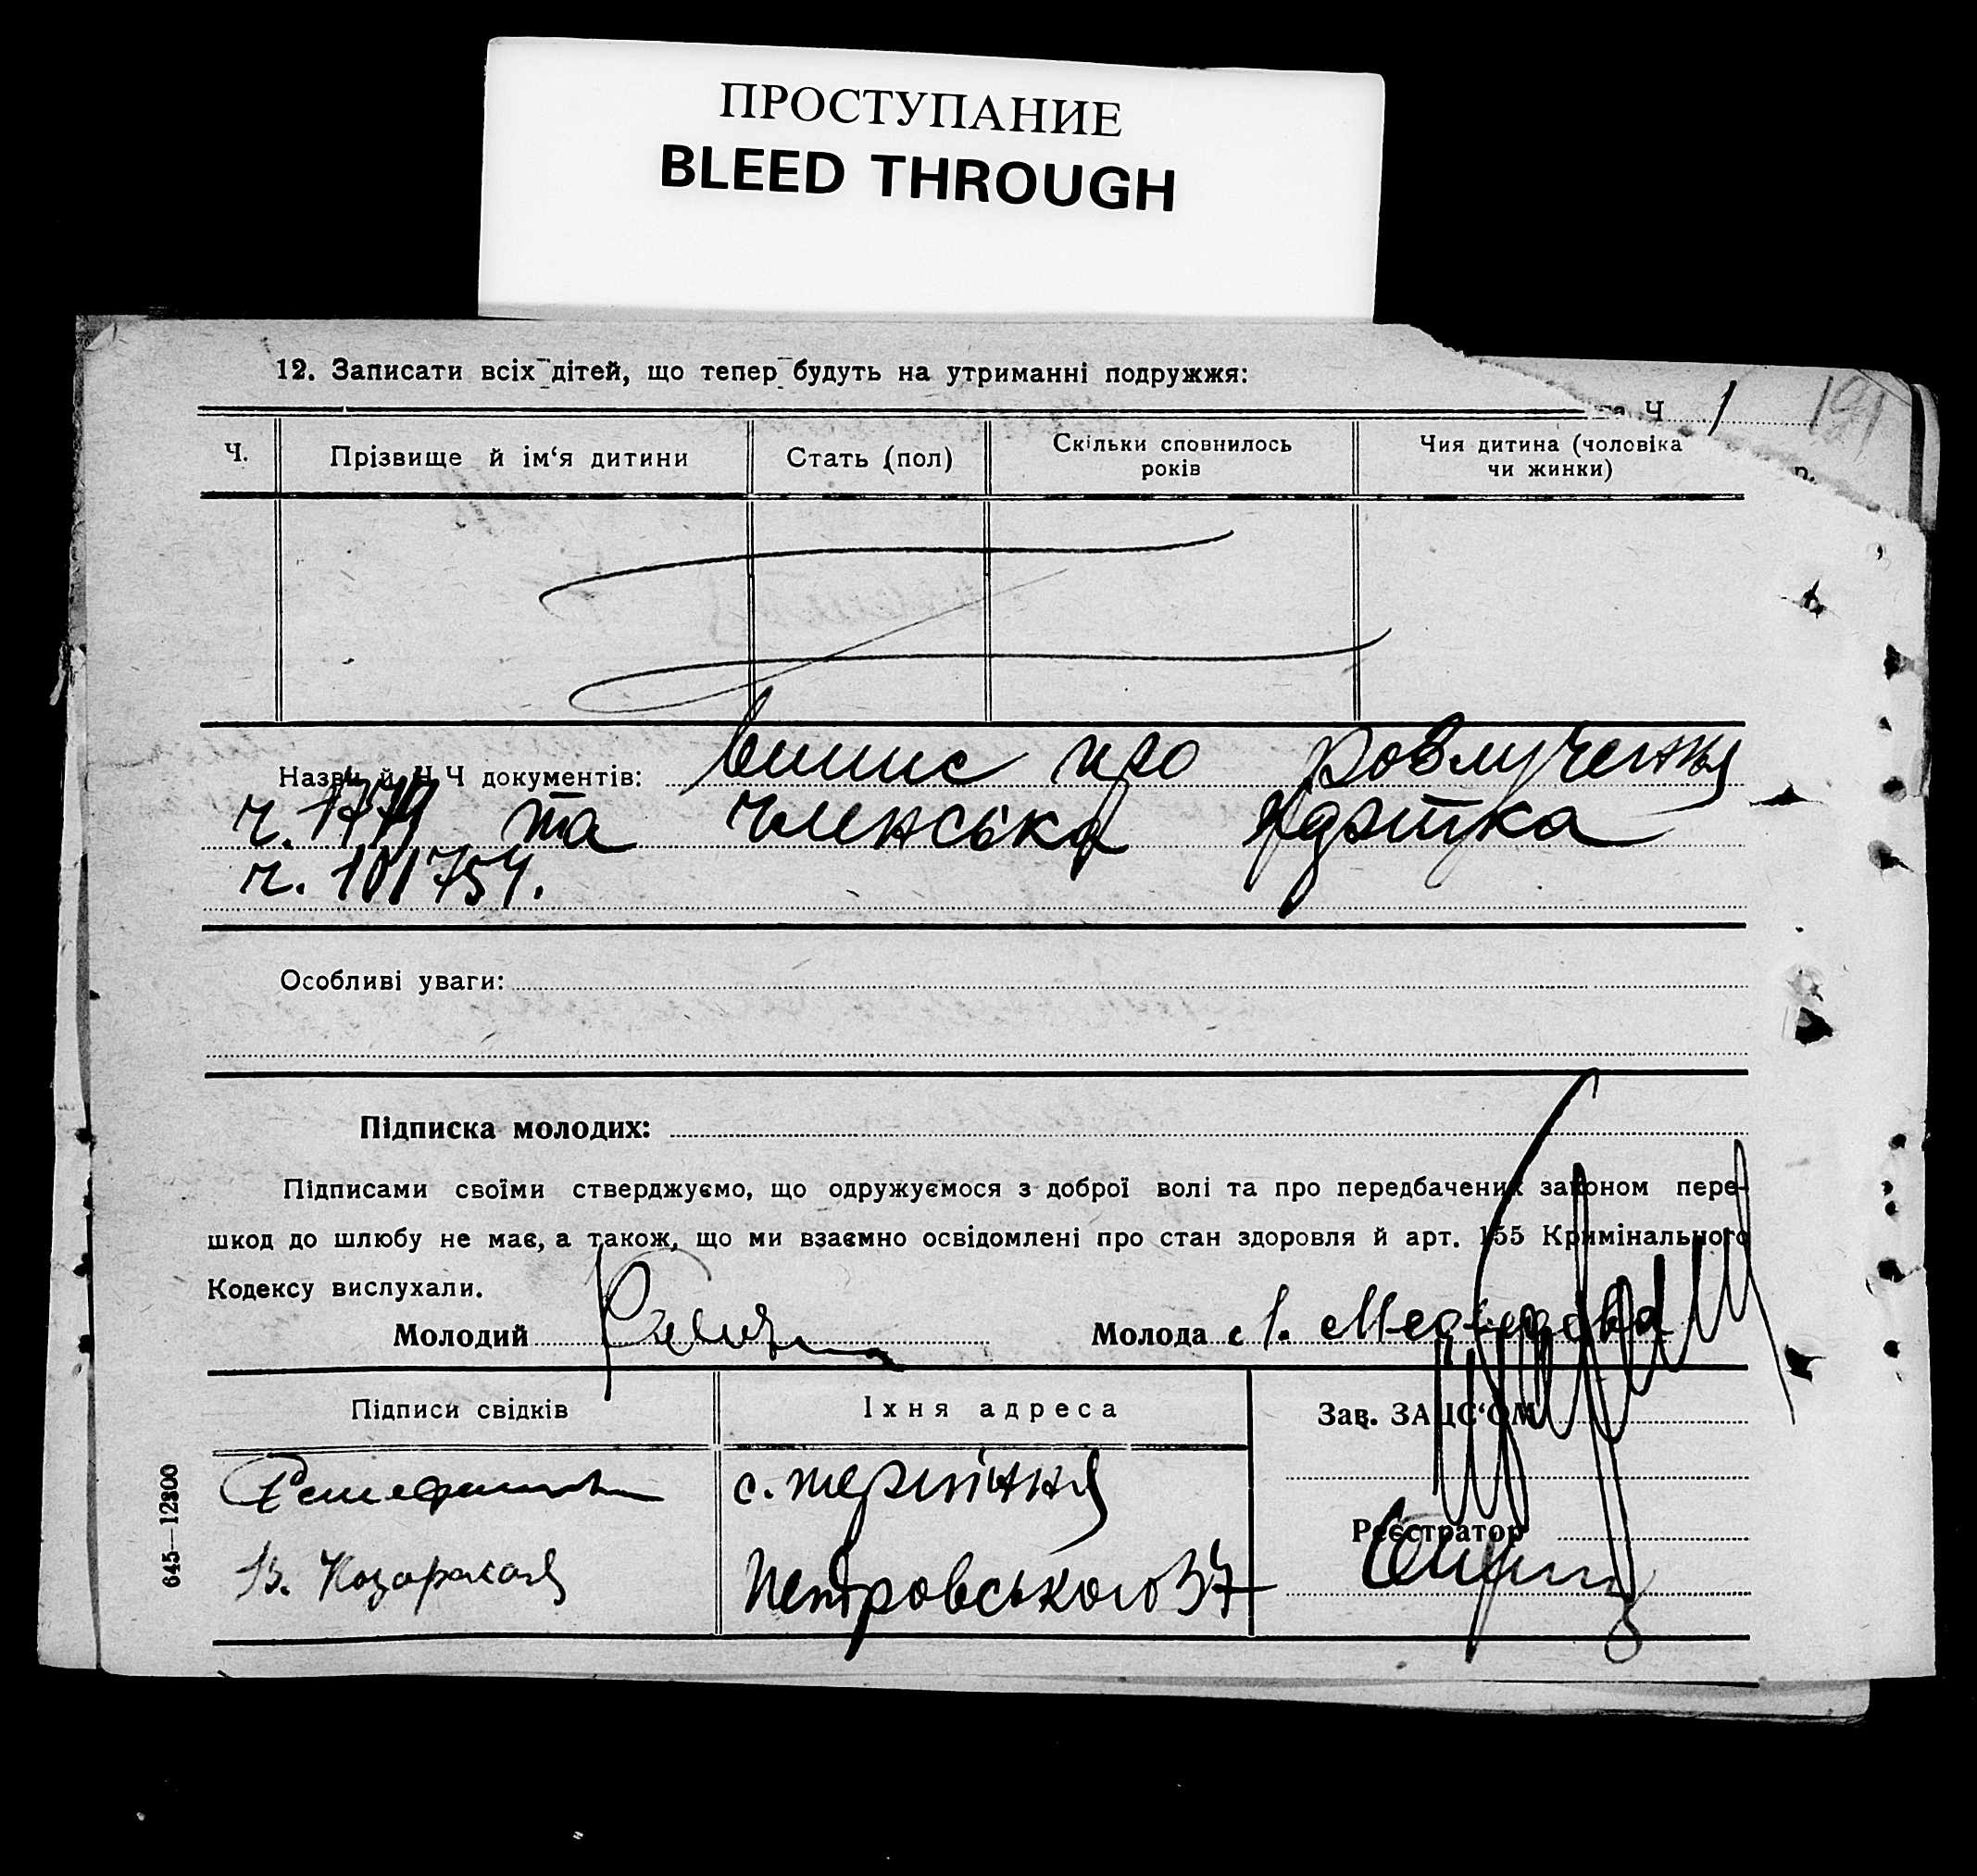 ПРОСТУПАНИЕ
BLEED THROUGH
12. Записати всіх дітей, що тепер будуть на утриманні подружжя:
Ч. 1
191
Ч.
Прізвище й ім‘я дитини
Стать (пол)
Скільки сповнилось
років
Чия дитина (чоловіка
чи жинки)
р.
Назви й Ч.Ч документів: випис про розлучення
ч. 1779 та членська
ч. 101754.
Особливі уваги:
Підписка молодих:
Підписами своїми стверджуємо, що одружуємося з доброї волі та про передбачених законом пере-
шкод до шлюбу не має, а також, що ми взаємно освідомлені про стан здоровля й арт. 155 Кримінального
Кодексу вислухали.
Молодий
Молода
Підписи свідків
Їхня адреса
Зав. ЗАЦС‘ОМ
с.
Реєстратор
В.
Петровського 37
645—12800